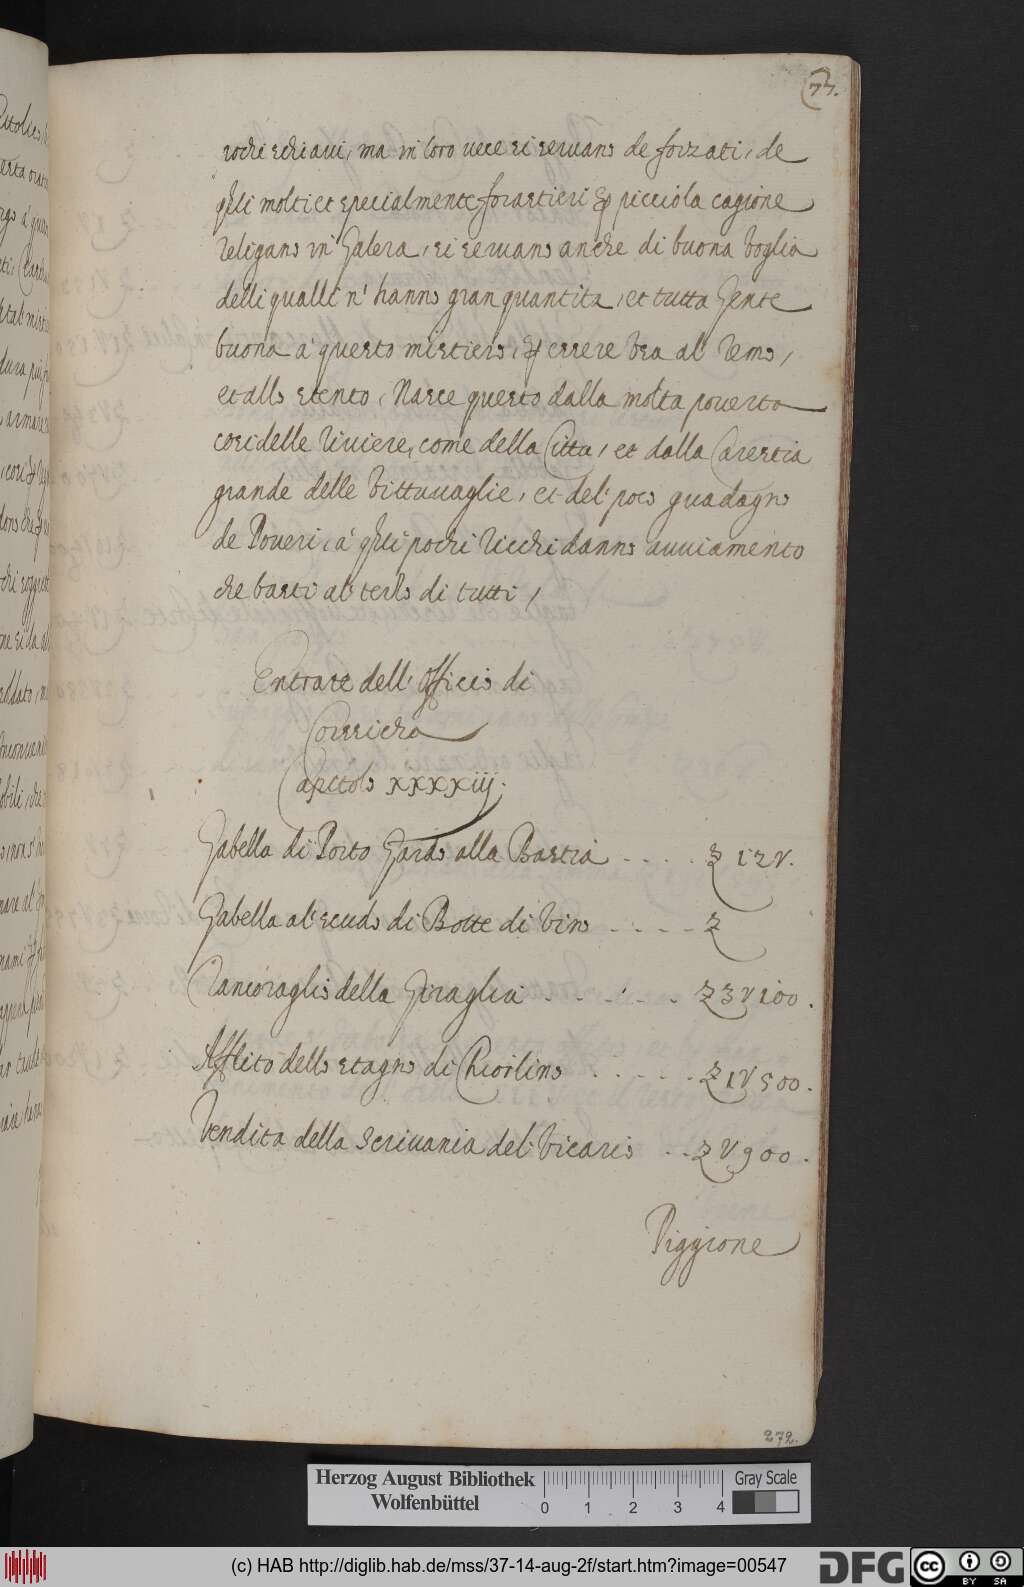 77.
pochi schiaui, ma in loro uece si seruano de forzati, de
q̃lli molti et specialmente forastieri ꝑ picciola cagione
religano in Galera, si seruano anche di buona Voglia
delli qualli n' hanno gran quantita, et tutta Gente
buona a' questo mistiero, ꝑ essere Vsa al Remo,
et allo stento, Nasce questo dalla molta pouerta
cosi delle Riuiere, come della Citta, et dalla Carestia
grande delle Vittuuaglie, et del poco guadagno
de Poueri, a' q̃lli pochi Ricchi danno auuiamento
che basti al terzo di tutti,
Entrate dell' Officio di
Corsicha
Capitolo xxxxiij.
Gabella di Porto Gardo alla Bastia . . . . Z 12V.
Gabella al' scudo di Botte di Vino . . . . . Z
Cancoraglio della Giraglia . . . . . . Z 3V100.
Affito dello stagno di Chiorlino . . . . . Z 1V500.
Vendita della Scriuania del Vicario . . Z V900.
Piggione
272.
Herzog August Bibliothek
Wolfenbüttel
0 1 2 3 4
Gray Scale
(c) HAB http://diglib.hab.de/mss/37-14-aug-2f/start.htm?image=00547
DFG
cc BY SA